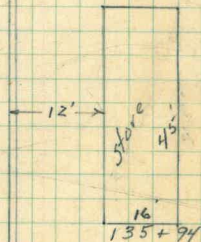 12'
Store
45'
16'
135+94